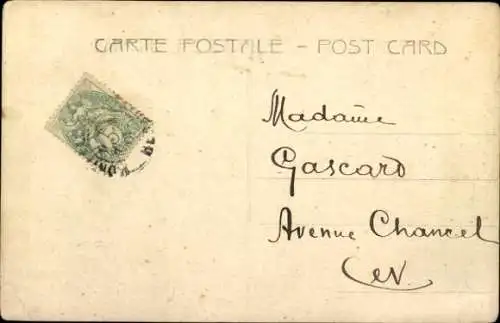 CARTE POSTALE – POST CARD
Madame
Gascard
Avenue Chancel
EV